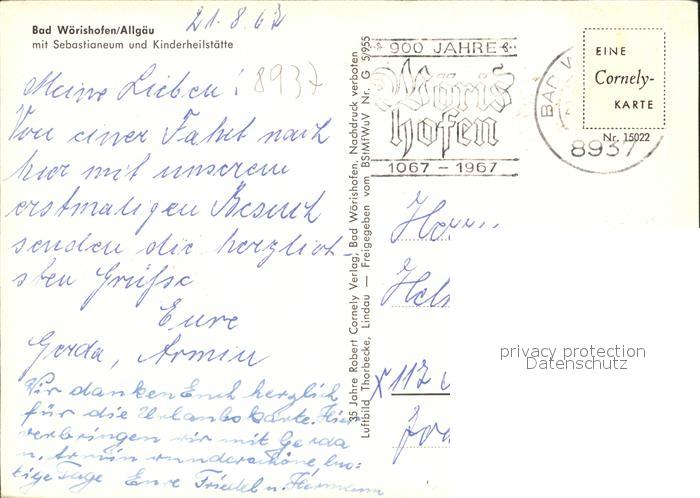 21.8.67
Bad Wörishofen/Allgäu
mit Sebastianeum und Kinderheilstätte
Meine Lieben! 8937
Von einer Fahrt nach
hier mit unserem
erstmaligen Besuch
senden die herzlich-
sten Grüße
Eure
Gerda, Armin
Wir danken Euch herzlich
für die Urlaubskarte. Hier
verbringen wir mit Gerda
u. Armin wunderschöne, lus-
tige Tage Eure Friedel u. Hermann
35 Jahre Robert Cornely Verlag, Bad Wörishofen, Nachdruck verboten
Luftbild Thorbecke, Lindau — Freigegeben vom BStMfWuV Nr. G 5/955
900 JAHRE
Wöris
hofen
1067 - 1967
BAD W
8937
EINE
Cornely-
KARTE
Nr. 15022
Herrn
X 112
privacy protection
Datenschutz